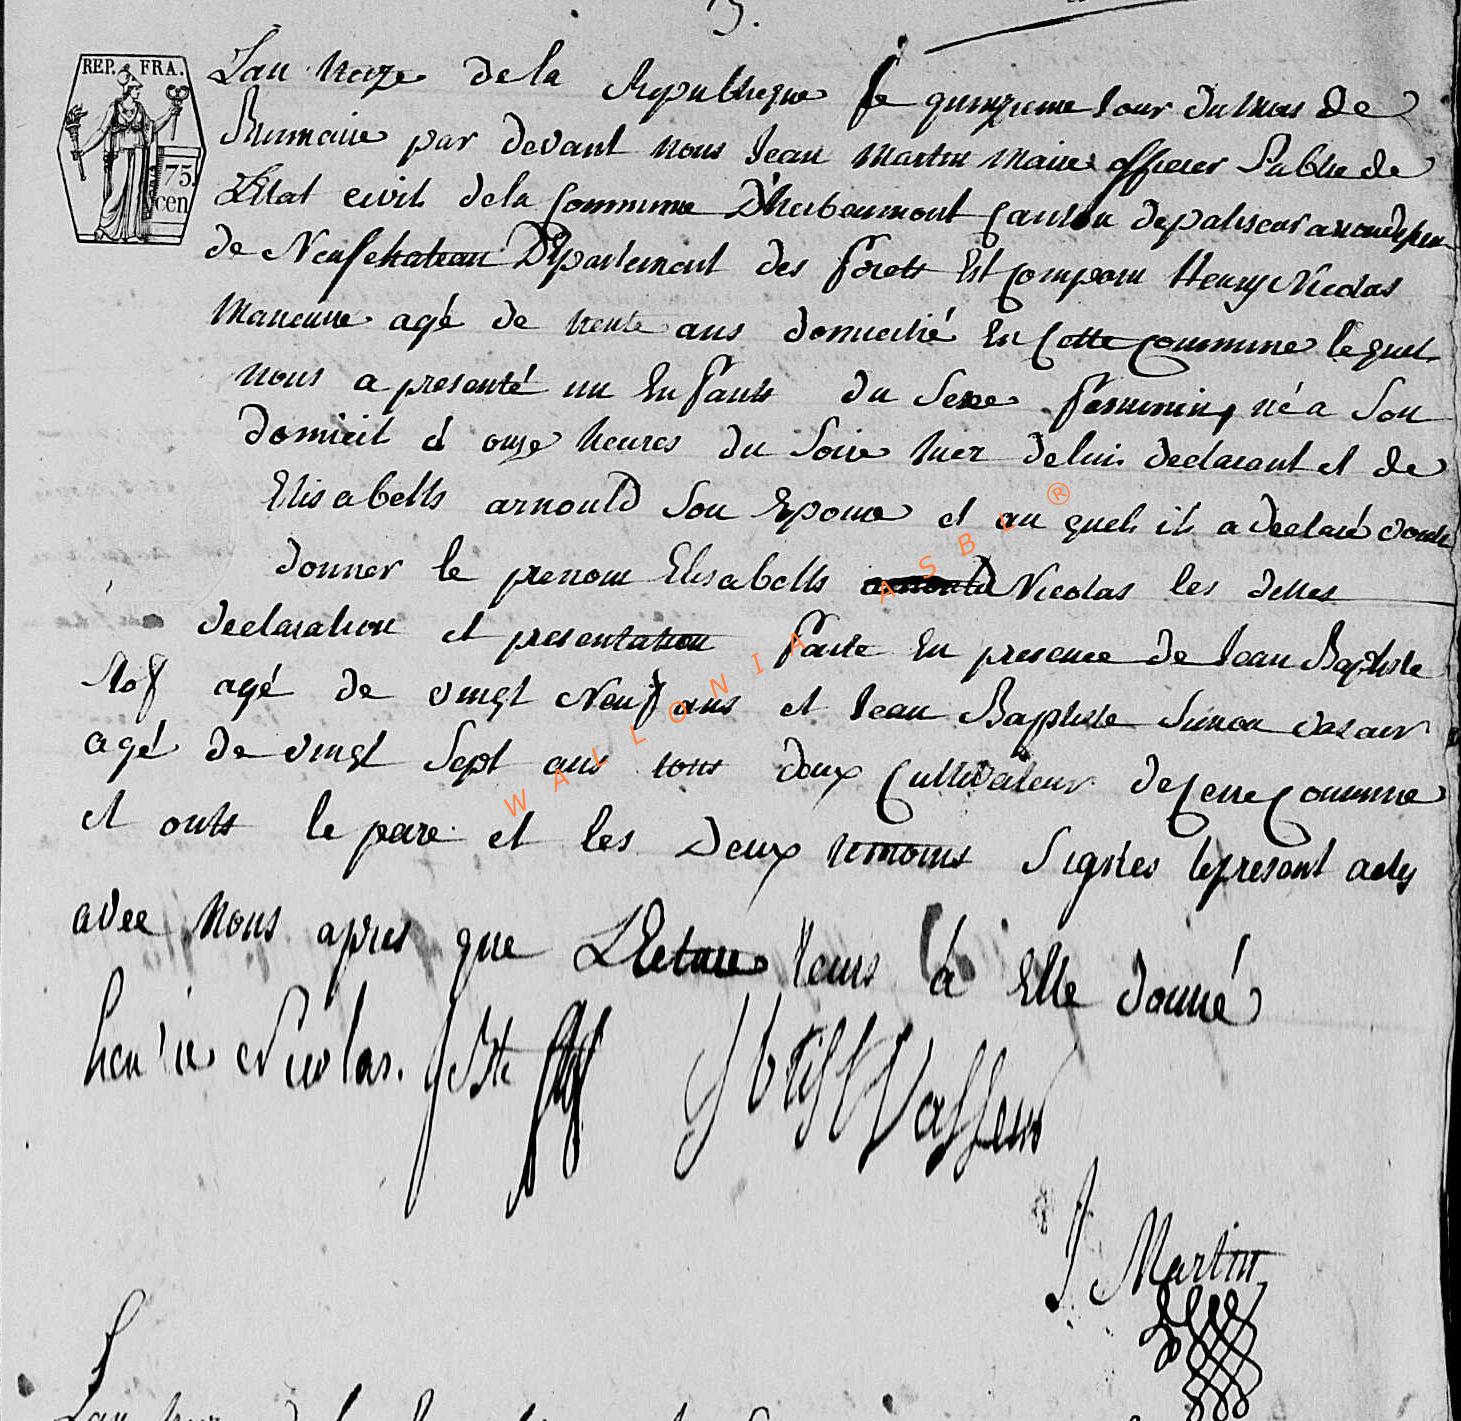 3.
REP. FRA.
75.
cen
Lan treize de la Republique le quinzieme Jour du mois de
Brumaire par devant nous Jean Martin Maire officier Public de
LEtat civil dela Commune D'herbeumont Canton depaliseur
de Neufchateau Département des forets Est Comparu Henry Nicolas
agé de trente ans domicilié En Cette Commune lequel
nous a presenté un Enfants du Sexe feminin, né a Son
domicil à onze heures du Soire hier delui declarant et de
Elisabeths arnould Son Epouse et au quels il a declaré voulu
donner le prenom Elisabeths Nicolas les dittes
declaration et presentation faite En presence de Jean Baptiste
agé de vingt Neuf ans et Jean Baptiste Simon vasseur
agé de vingt Sept ans tous deux Cultivateur de Cette Commune
et onts le pere et les Deux temoins Signés lepresent acte
avec nous apres que LLecture leurs à Elle donné
henrie Nicolas. J Bte
Vasseur
J Martin
WALLONIA ASBL ®